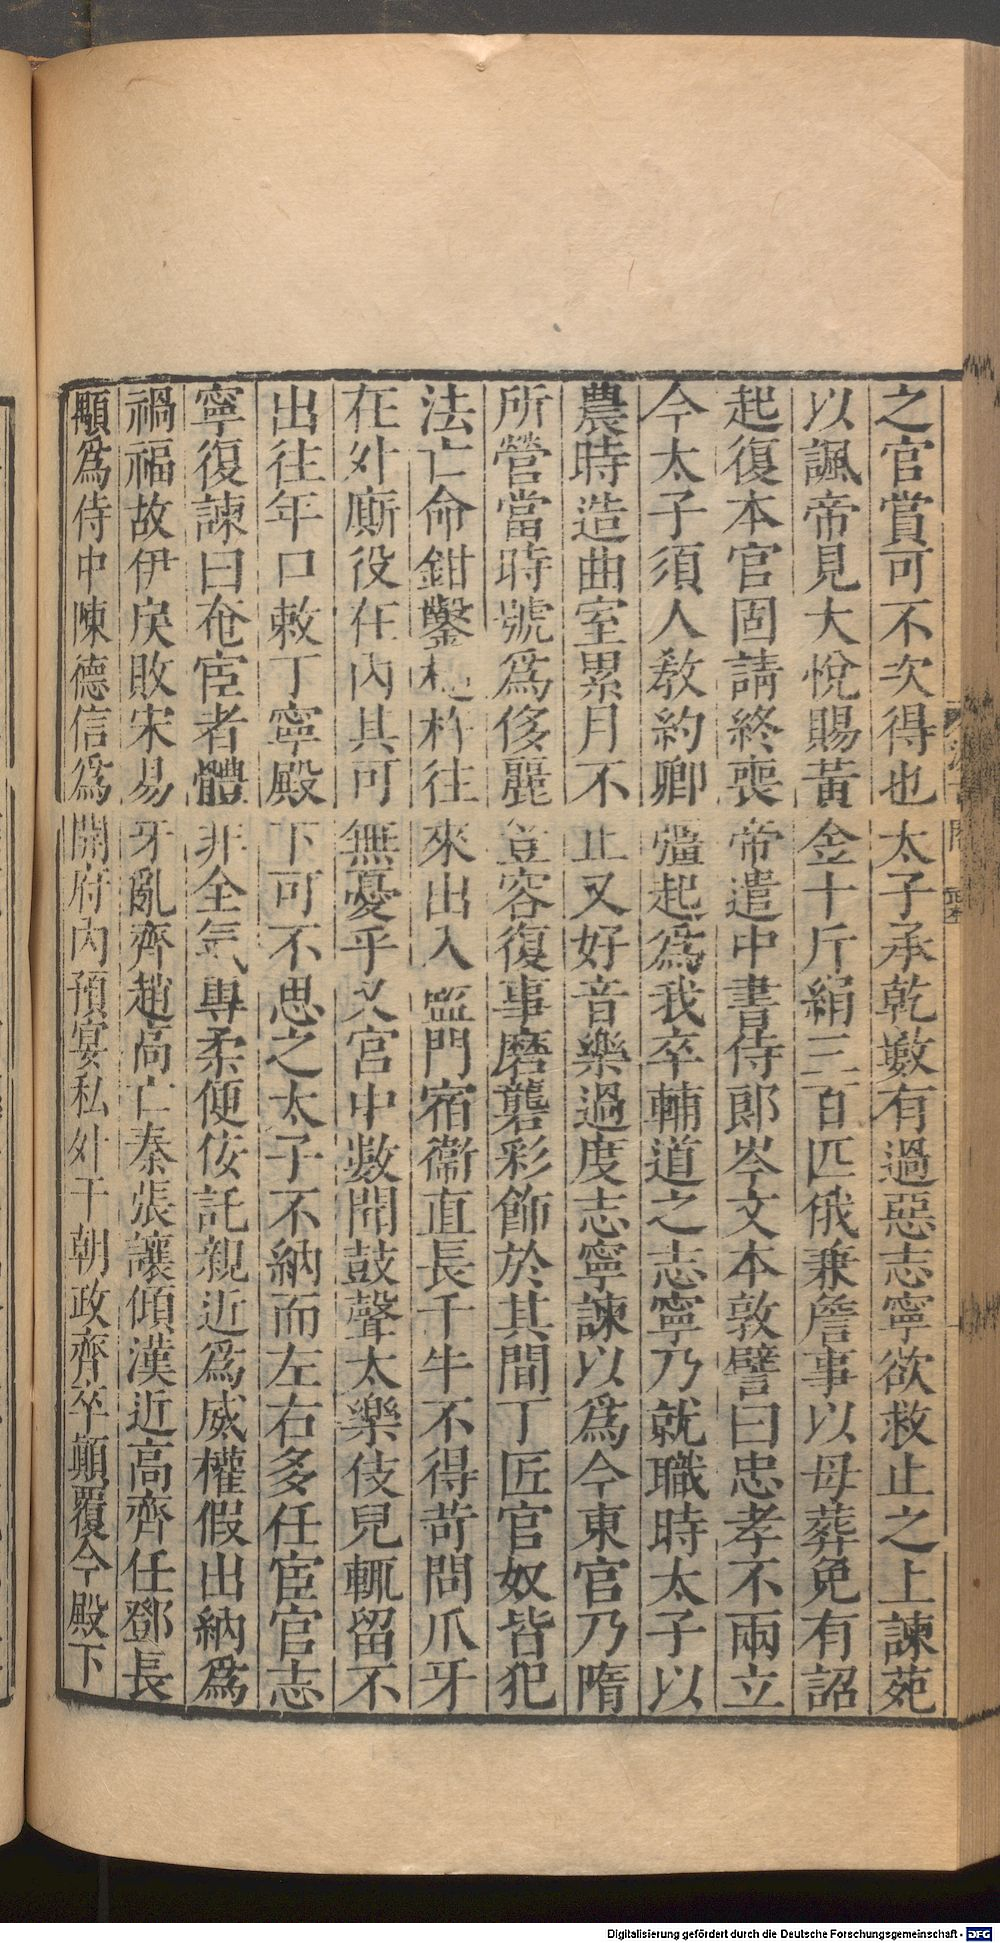 之官賞可不次得也太子承乾數有過惡志寧欲救止之上諫苑
以諷帝見大悅賜黃金十斤絹三百匹俄兼詹事以母葬免有詔
起復本官固請終喪帝遣中書侍郎岑文本敦譬曰忠孝不兩立
今太子須人敎約卿彊起爲我卒輔道之志寧乃就職時太子以
農時造曲室累月不止又好音樂過度志寧諫以爲今東宮乃隋
所營當時號爲侈麗豈容復事磨礱彩飾於其間丁匠官奴皆犯
法亡命鉗鑿槌杵往來出入監門宿衞直長千牛不得苛問爪牙
在外廝役在內其可無憂乎又宮中數聞鼓聲太樂伎兒輒留不
出往年口敕丁寧殿下可不思之太子不納而左右多任宦官志
寧復諫曰奄宦者體非全氣專柔便佞託親近爲威權假出納爲
禍福故伊戾敗宋易牙亂齊趙高亡秦張讓傾漢近高齊任鄧長
顒爲侍中陳德信爲開府內預宴私外干朝政齊卒顚覆今殿下
Digitalisierung gefördert durch die Deutsche Forschungsgemeinschaft - DFG